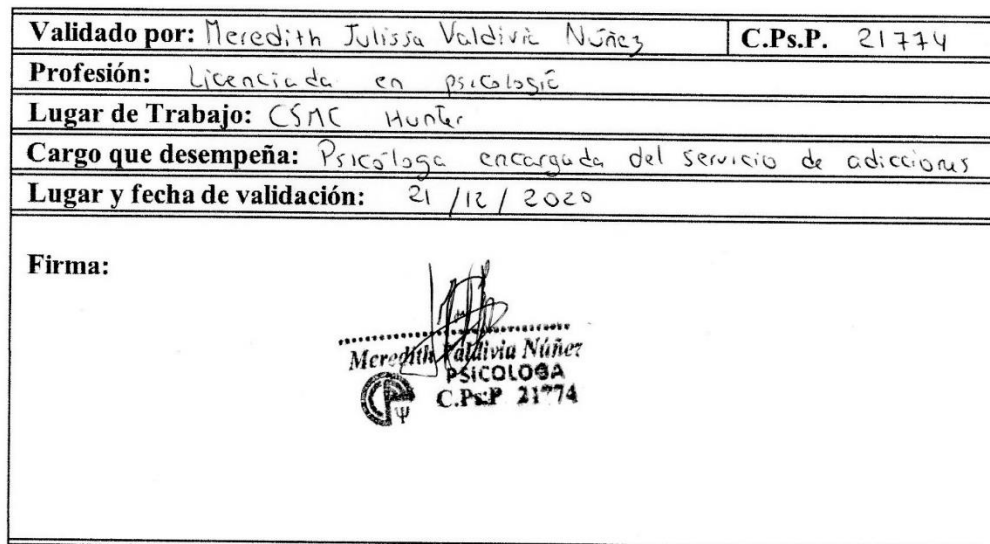 Validado por: Meredith Julissa Valdivia Núñez C.Ps.P. 21774
Profesión: Licenciada en psicología
Lugar de Trabajo: CSMC Hunter
Cargo que desempeña: Psicóloga encargada del servicio de adicciones
Lugar y fecha de validación: 21 /12 / 2020
Firma:
Meredith Valdivia Núñez
PSICOLOGA
C.Ps.P 21774